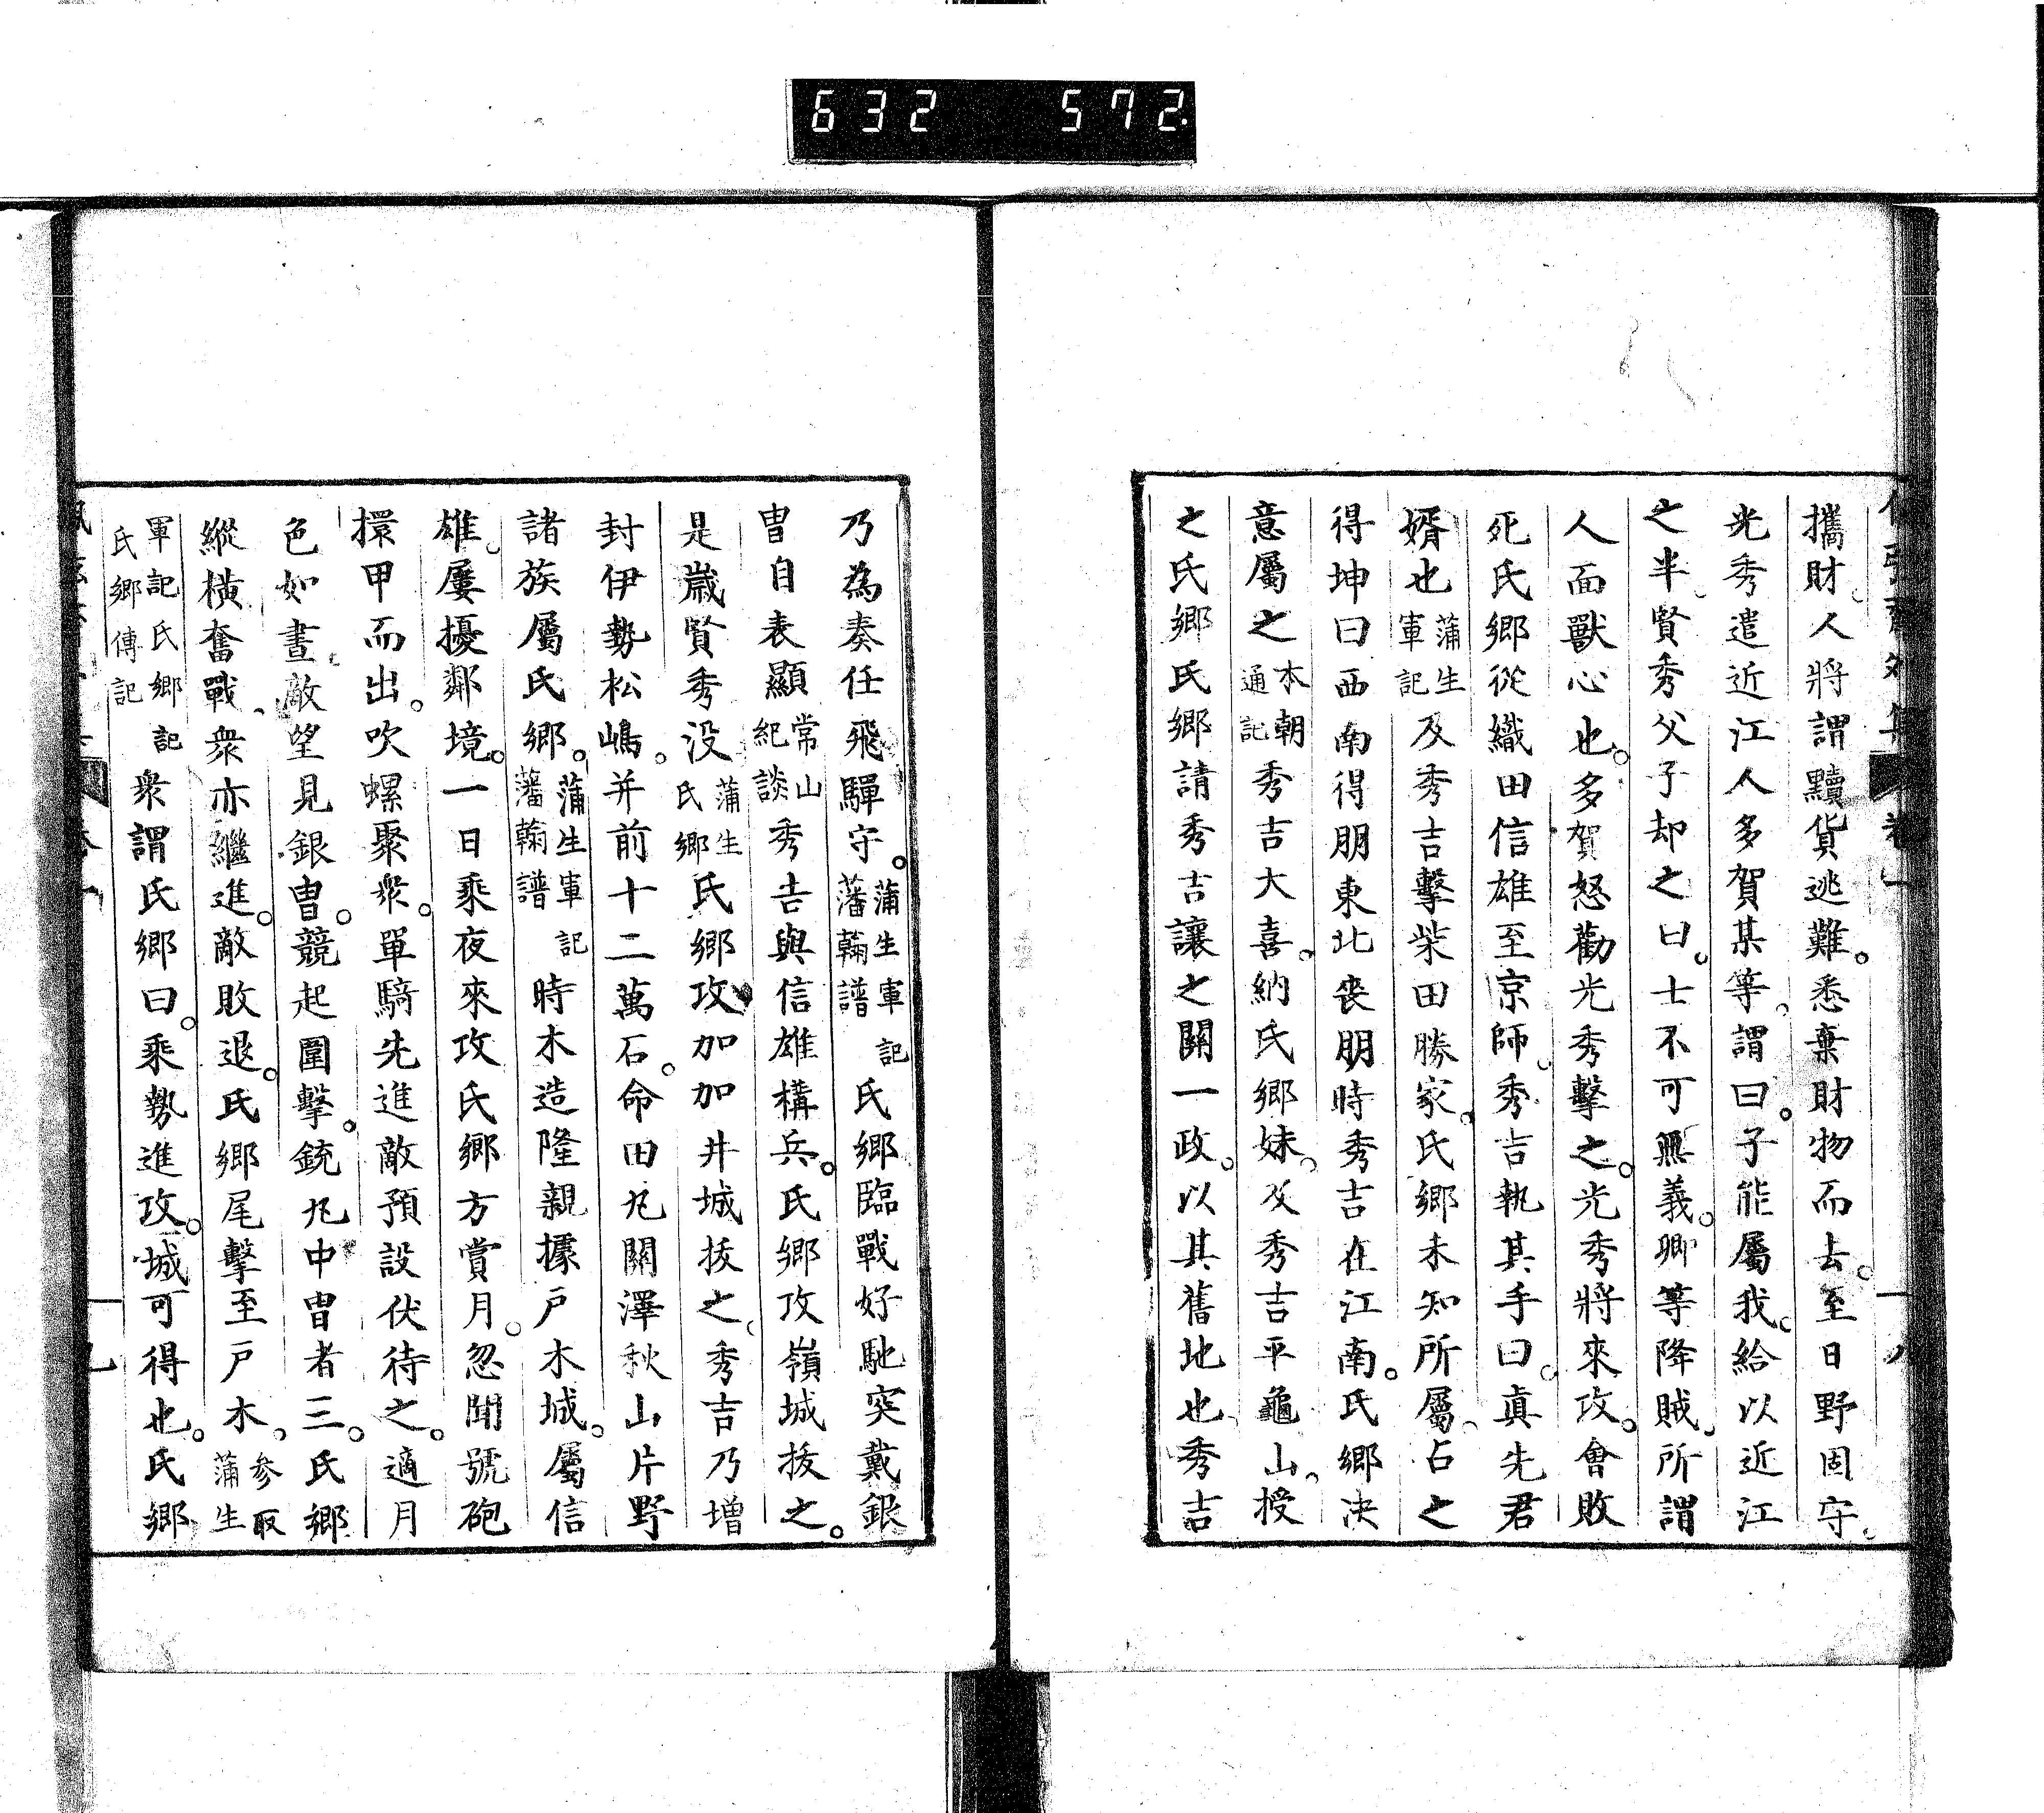 632 572
攜財人將謂黷貨逃難。悉棄財物而去。至日野固守。
光秀遣近江人多賀某等。謂曰。子能屬我。給以近江
之半。賢秀父子却之曰。士不可無義。卿等降賊。所謂
人面獸心也。多賀怒勸光秀擊之。光秀將來攻。會敗
死氏鄉從織田信雄至京師。秀吉執其手曰。真先君
婿也蒲生軍記及秀吉擊柴田勝家。氏鄉未知所屬。占之
得坤曰西南得朋東北喪朋時秀吉在江南。氏鄉决
意屬之本朝通記秀吉大喜。納氏鄉妹。及秀吉平龜山。授
之氏鄉氏鄉請秀吉讓之關一政。以其舊地也秀吉
乃為奏任飛驒守。蒲生軍記藩翰譜氏鄉臨戰好馳突戴銀
冑自表顯常山紀談秀吉與信雄構兵。氏鄉攻嶺城拔之。
是歲賢秀没蒲生氏鄉氏鄉攻加加井城拔之。秀吉乃增
封伊勢松嶋。并前十二萬石。命田丸關澤秋山片野
諸族屬氏鄉。蒲生軍記藩翰譜時木造隆親據戸木城。屬信
雄。屢擾鄰境。一日乘夜來攻氏鄉方賞月。忽聞號砲
擐甲而出。吹螺聚衆。單騎先進敵預設伏待之。適月
色如晝。敵望見銀冑。競起圍擊。銃丸中冑者三。氏鄉
縱橫奮戰。衆亦繼進。敵敗退。氏鄉尾擊至戸木。參取蒲生
軍記氏鄉記氏鄉傳記衆謂氏鄉曰。乘勢進攻。城可得也。氏鄉